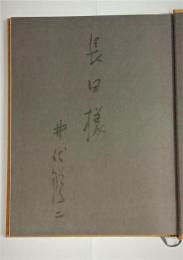 長田様
井伏鱒二